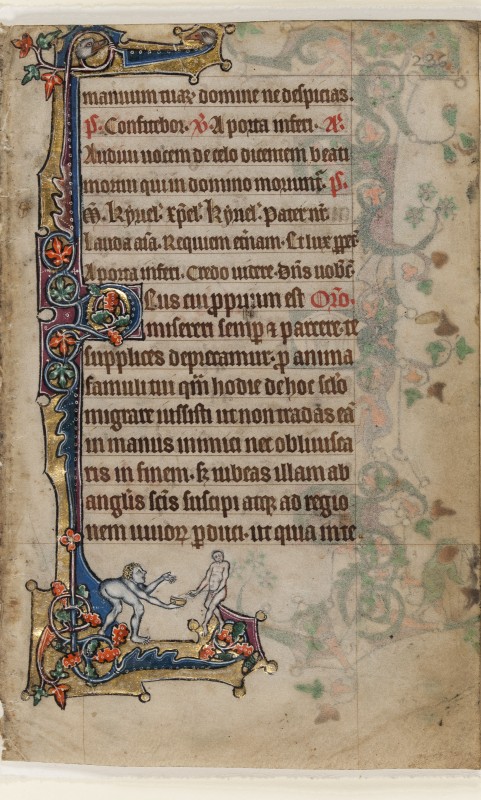 236
manuum tuaꝝ domine ne despicias.
p̃. Confitebor. v̄. A porta inferi. A͞.
Audiui uocem de celo dicentem beati
mortui qui in domino moriunt᷑. p̃.
Kyriel̕. xp̄el̕. Kyriel̕. Pater nr̄
Lauda aīa. Requiem et̄nam. Et lux ꝑpet̄
A porta inferi. Credo uidere. Dn̄s uobc̄.
Deus cui ꝓprium est Or̄o.
misereri semꝑ ⁊ parcere. te
supplices deprecamur. ꝓ anima
famuli tui qm̄ hodie de hoc sc̄lo
migrare iussisti ut non tradas eā
in manus inimici nec obliuisca
ris in finem. s; iubeas illam ab
angl̄is sc̄is suscipi atqꝫ ad regio
nem uiuoꝝ ꝑduci. ut quia in te